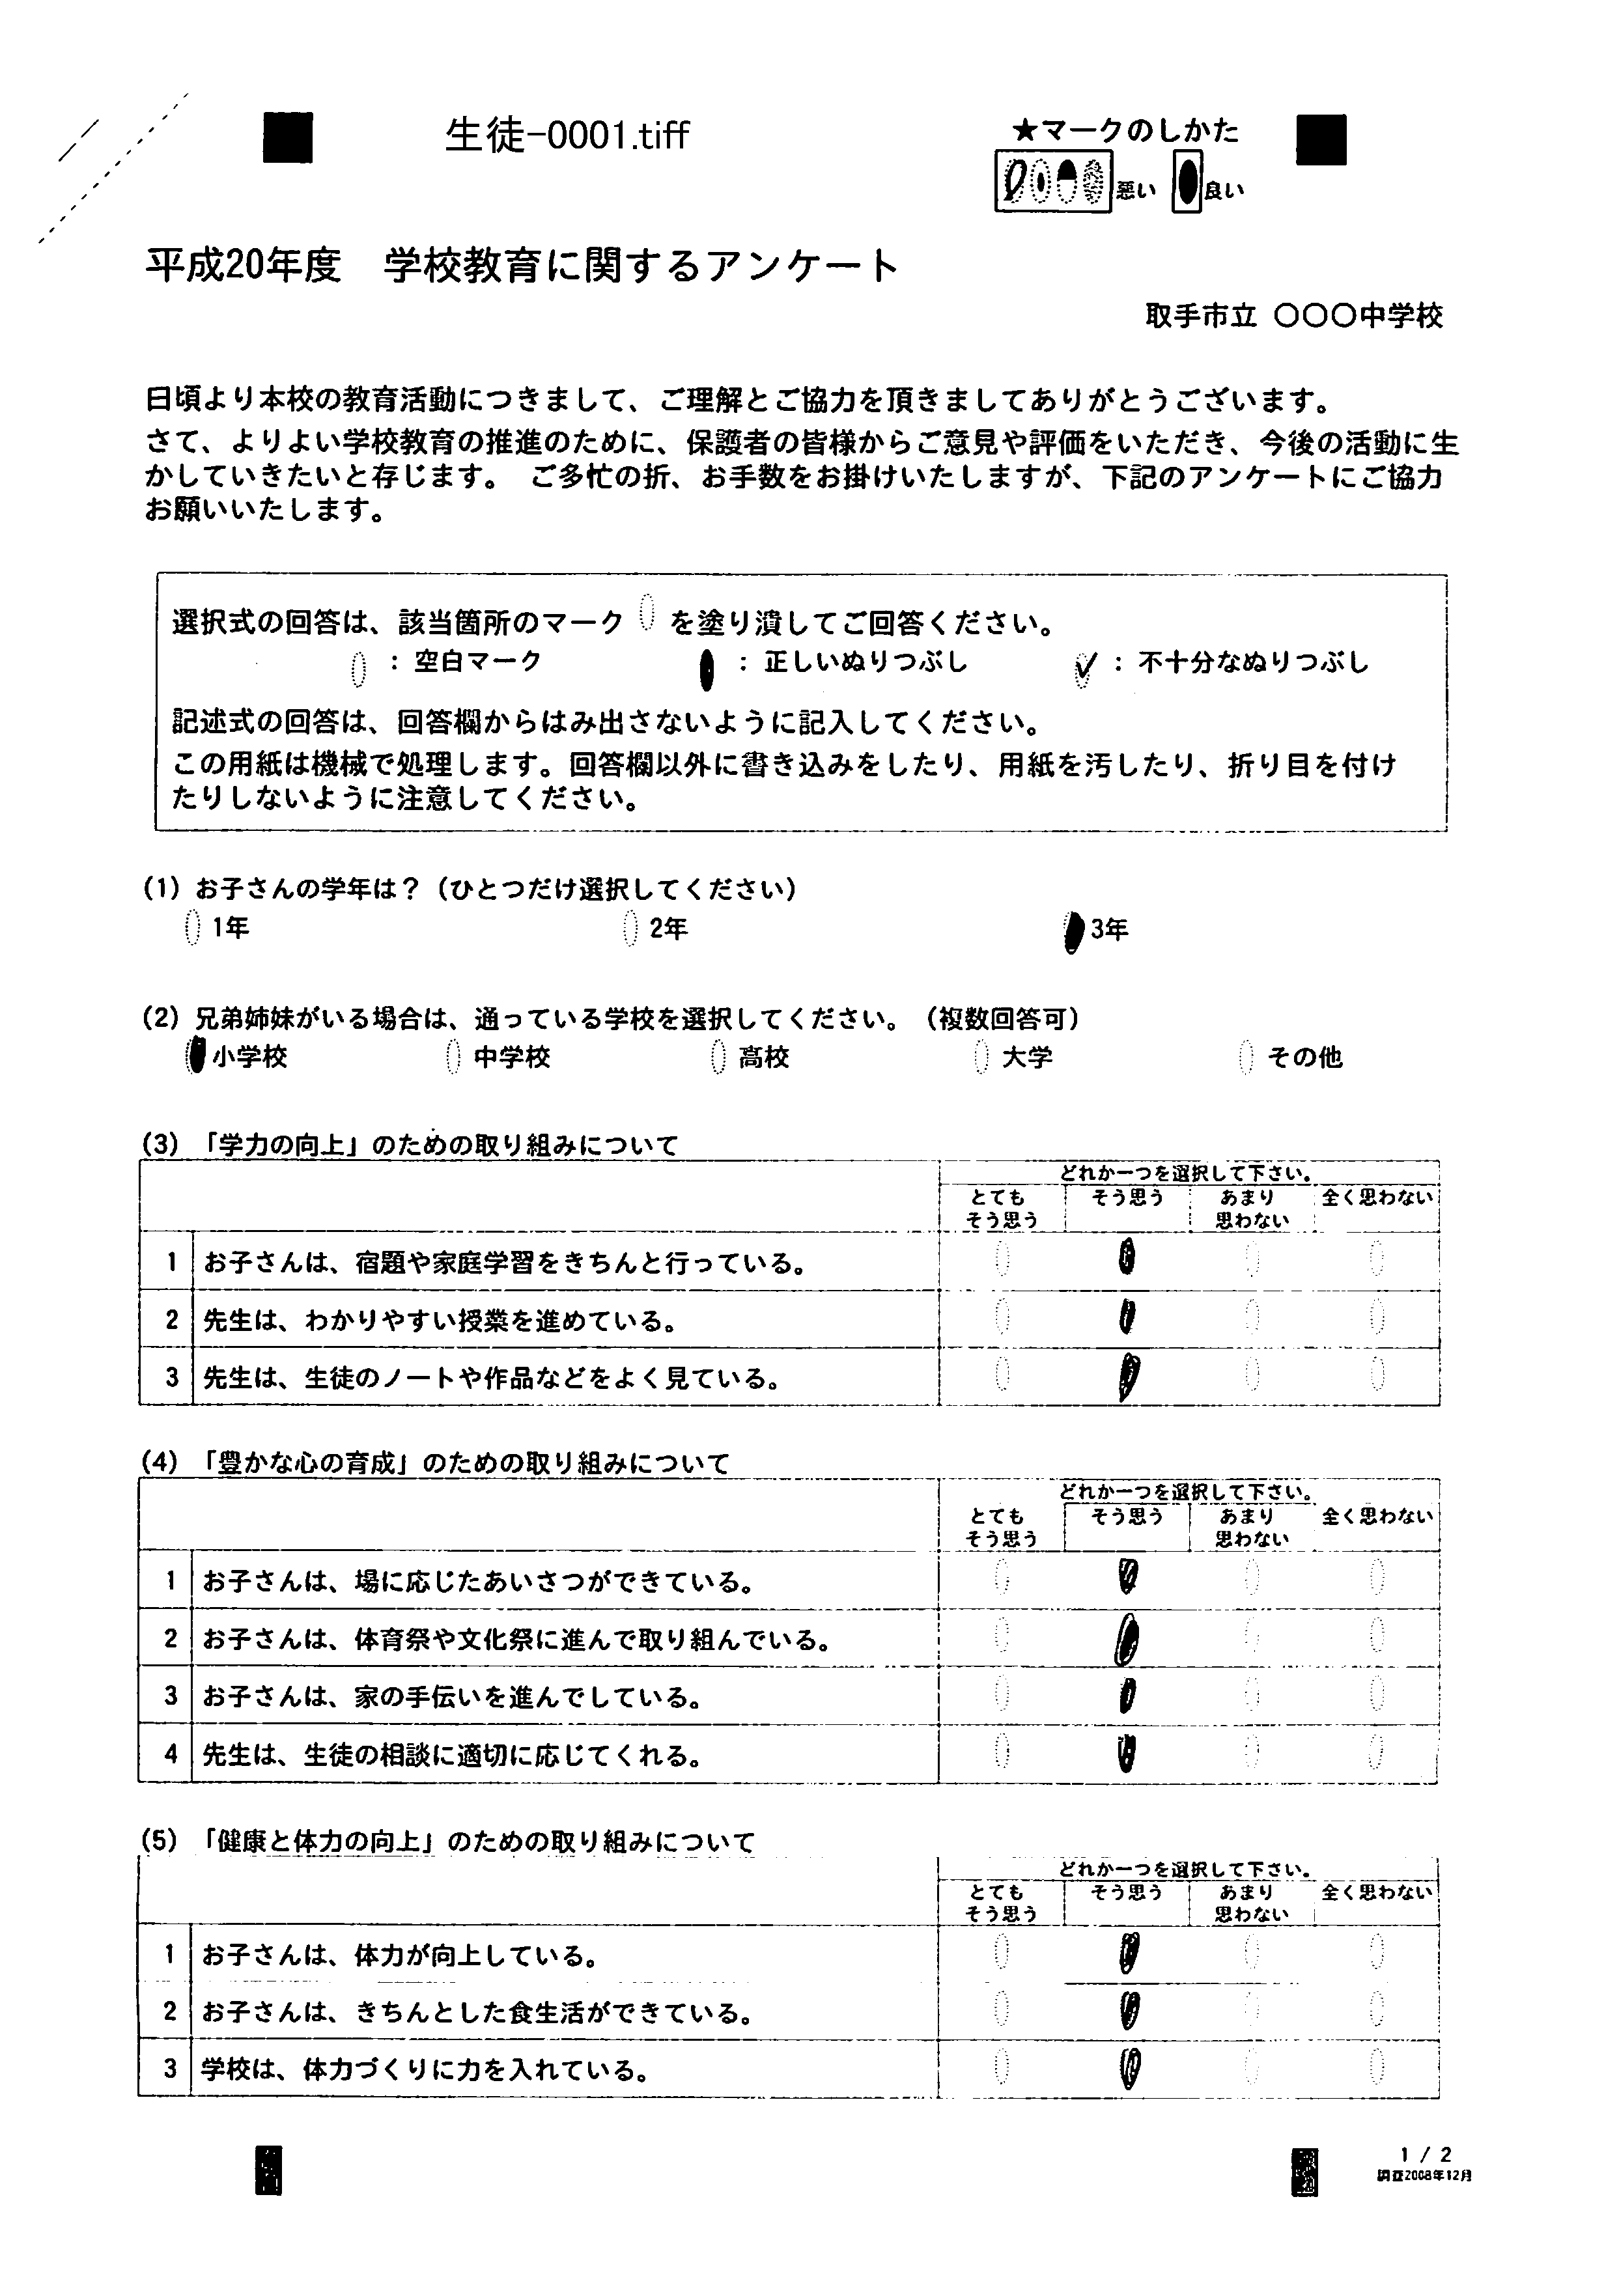 生徒-0001.tiff
★マークのしかた
悪い 良い
平成20年度 学校教育に関するアンケート
取手市立 〇〇〇中学校
日頃より本校の教育活動につきまして、ご理解とご協力を頂きましてありがとうございます。
さて、よりよい学校教育の推進のために、保護者の皆様からご意見や評価をいただき、今後の活動に生
かしていきたいと存じます。 ご多忙の折、お手数をお掛けいたしますが、下記のアンケートにご協力
お願いいたします。
選択式の回答は、該当箇所のマーク を塗り潰してご回答ください。
：空白マーク ：正しいぬりつぶし ：不十分なぬりつぶし
記述式の回答は、回答欄からはみ出さないように記入してください。
この用紙は機械で処理します。回答欄以外に書き込みをしたり、用紙を汚したり、折り目を付け
たりしないように注意してください。
(1) お子さんの学年は？（ひとつだけ選択してください）
1年 2年 3年
(2) 兄弟姉妹がいる場合は、通っている学校を選択してください。（複数回答可）
小学校 中学校 高校 大学 その他
(3) 「学力の向上」のための取り組みについて
どれか一つを選択して下さい。
とても そう思う あまり 全く思わない
そう思う 思わない
1 お子さんは、宿題や家庭学習をきちんと行っている。
2 先生は、わかりやすい授業を進めている。
3 先生は、生徒のノートや作品などをよく見ている。
(4) 「豊かな心の育成」のための取り組みについて
どれか一つを選択して下さい。
とても そう思う あまり 全く思わない
そう思う 思わない
1 お子さんは、場に応じたあいさつができている。
2 お子さんは、体育祭や文化祭に進んで取り組んでいる。
3 お子さんは、家の手伝いを進んでしている。
4 先生は、生徒の相談に適切に応じてくれる。
(5) 「健康と体力の向上」のための取り組みについて
どれか一つを選択して下さい。
とても そう思う あまり 全く思わない
そう思う 思わない
1 お子さんは、体力が向上している。
2 お子さんは、きちんとした食生活ができている。
3 学校は、体力づくりに力を入れている。
1 / 2
調査2008年12月